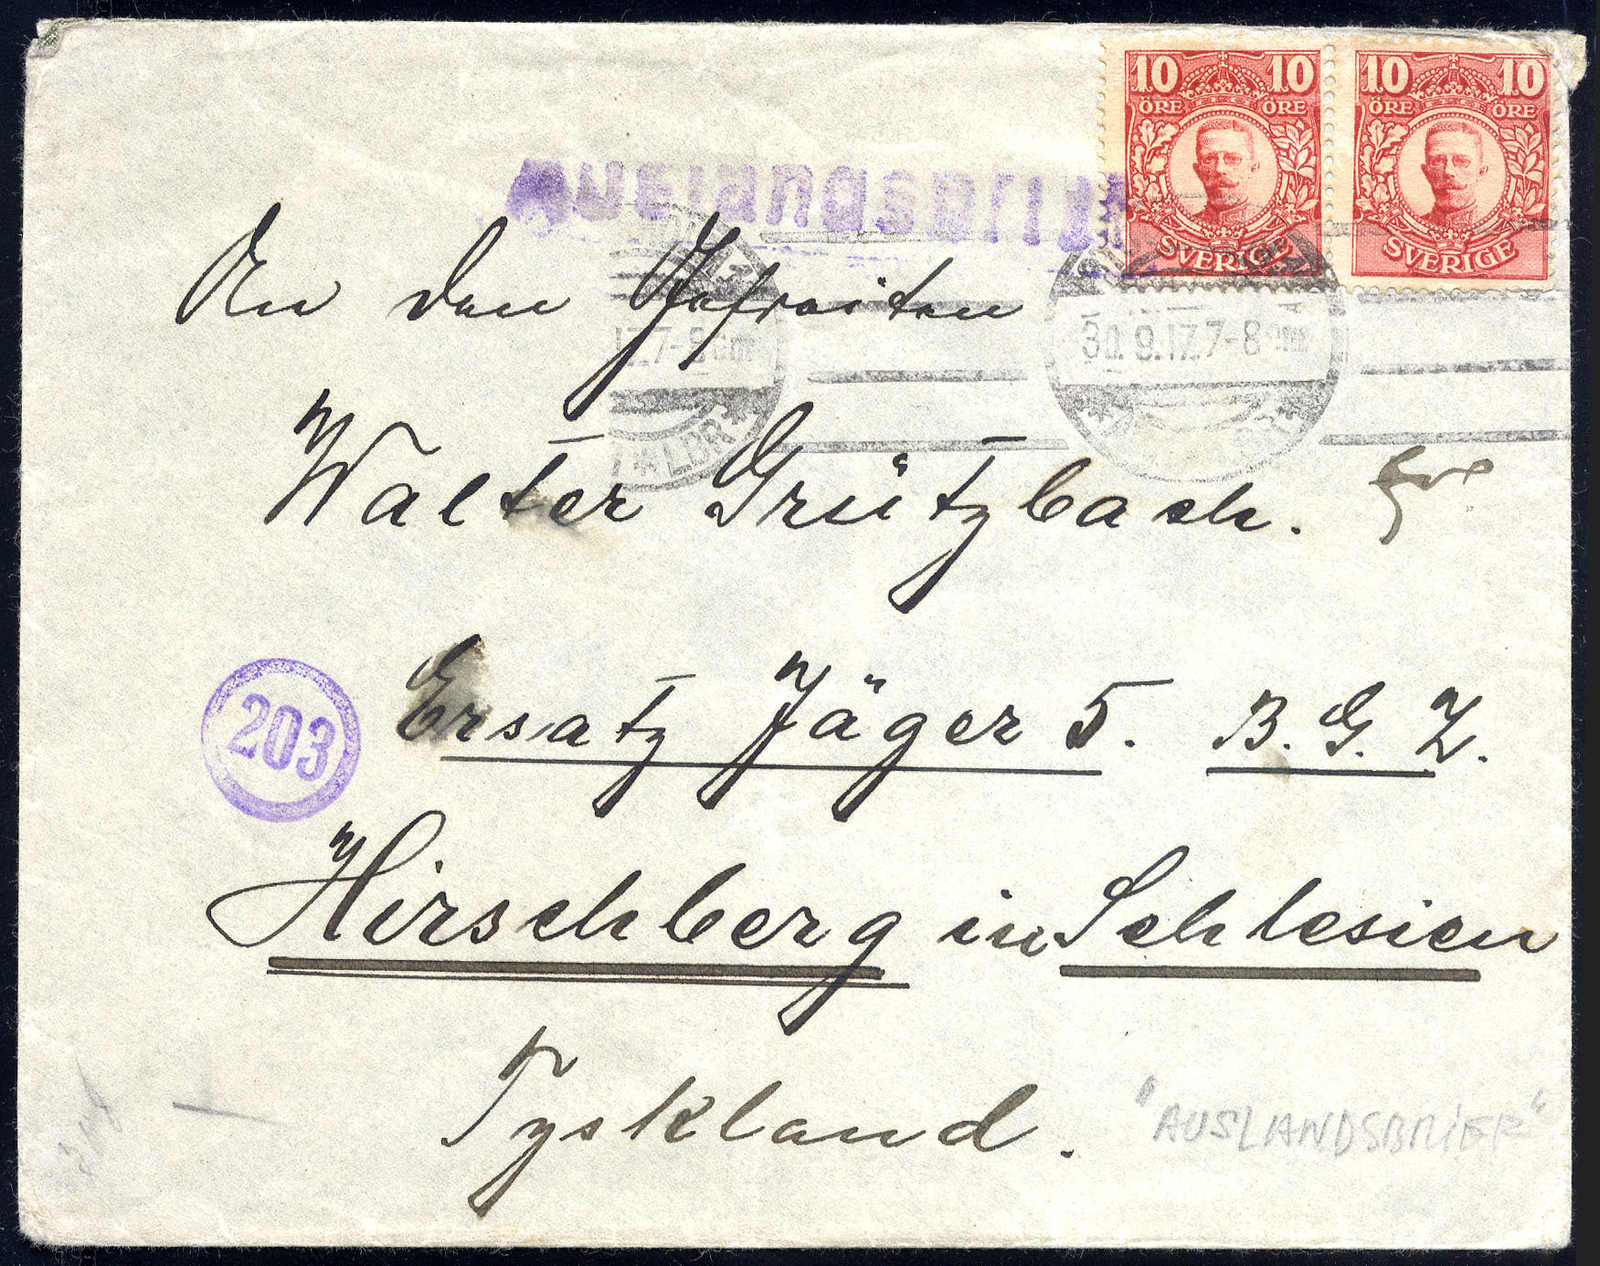 10 10 10 10
ÖRE ÖRE ÖRE ÖRE
SVERIGE SVERIGE
Auslandsbrief
An den Gefreiten
17.7-8 30.9.17.7-8
LBR
Walter Grützbach.
203
Ersatz Jäger 5. B. G. Z.
Hirschberg in Schlesien
Tyskland.
"AUSLANDSBRIEF"